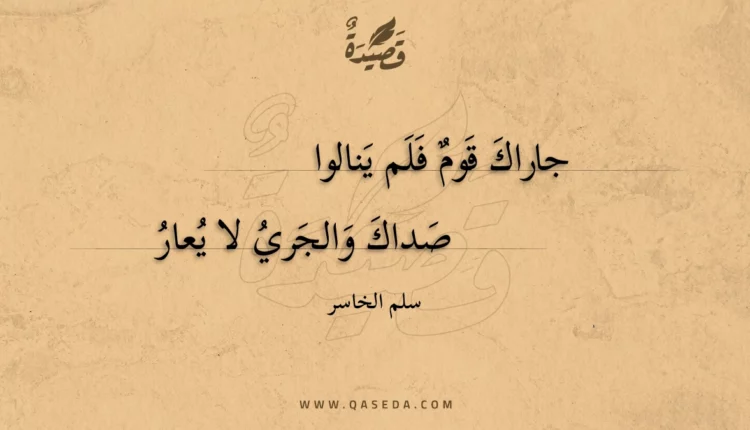 قَصِيْدَةٌ
جاراكَ قَومٌ فَلَم يَنالوا
صَداكَ وَالجَريُ لا يُعارُ
سلم الخاسر
WWW.QASEDA.COM